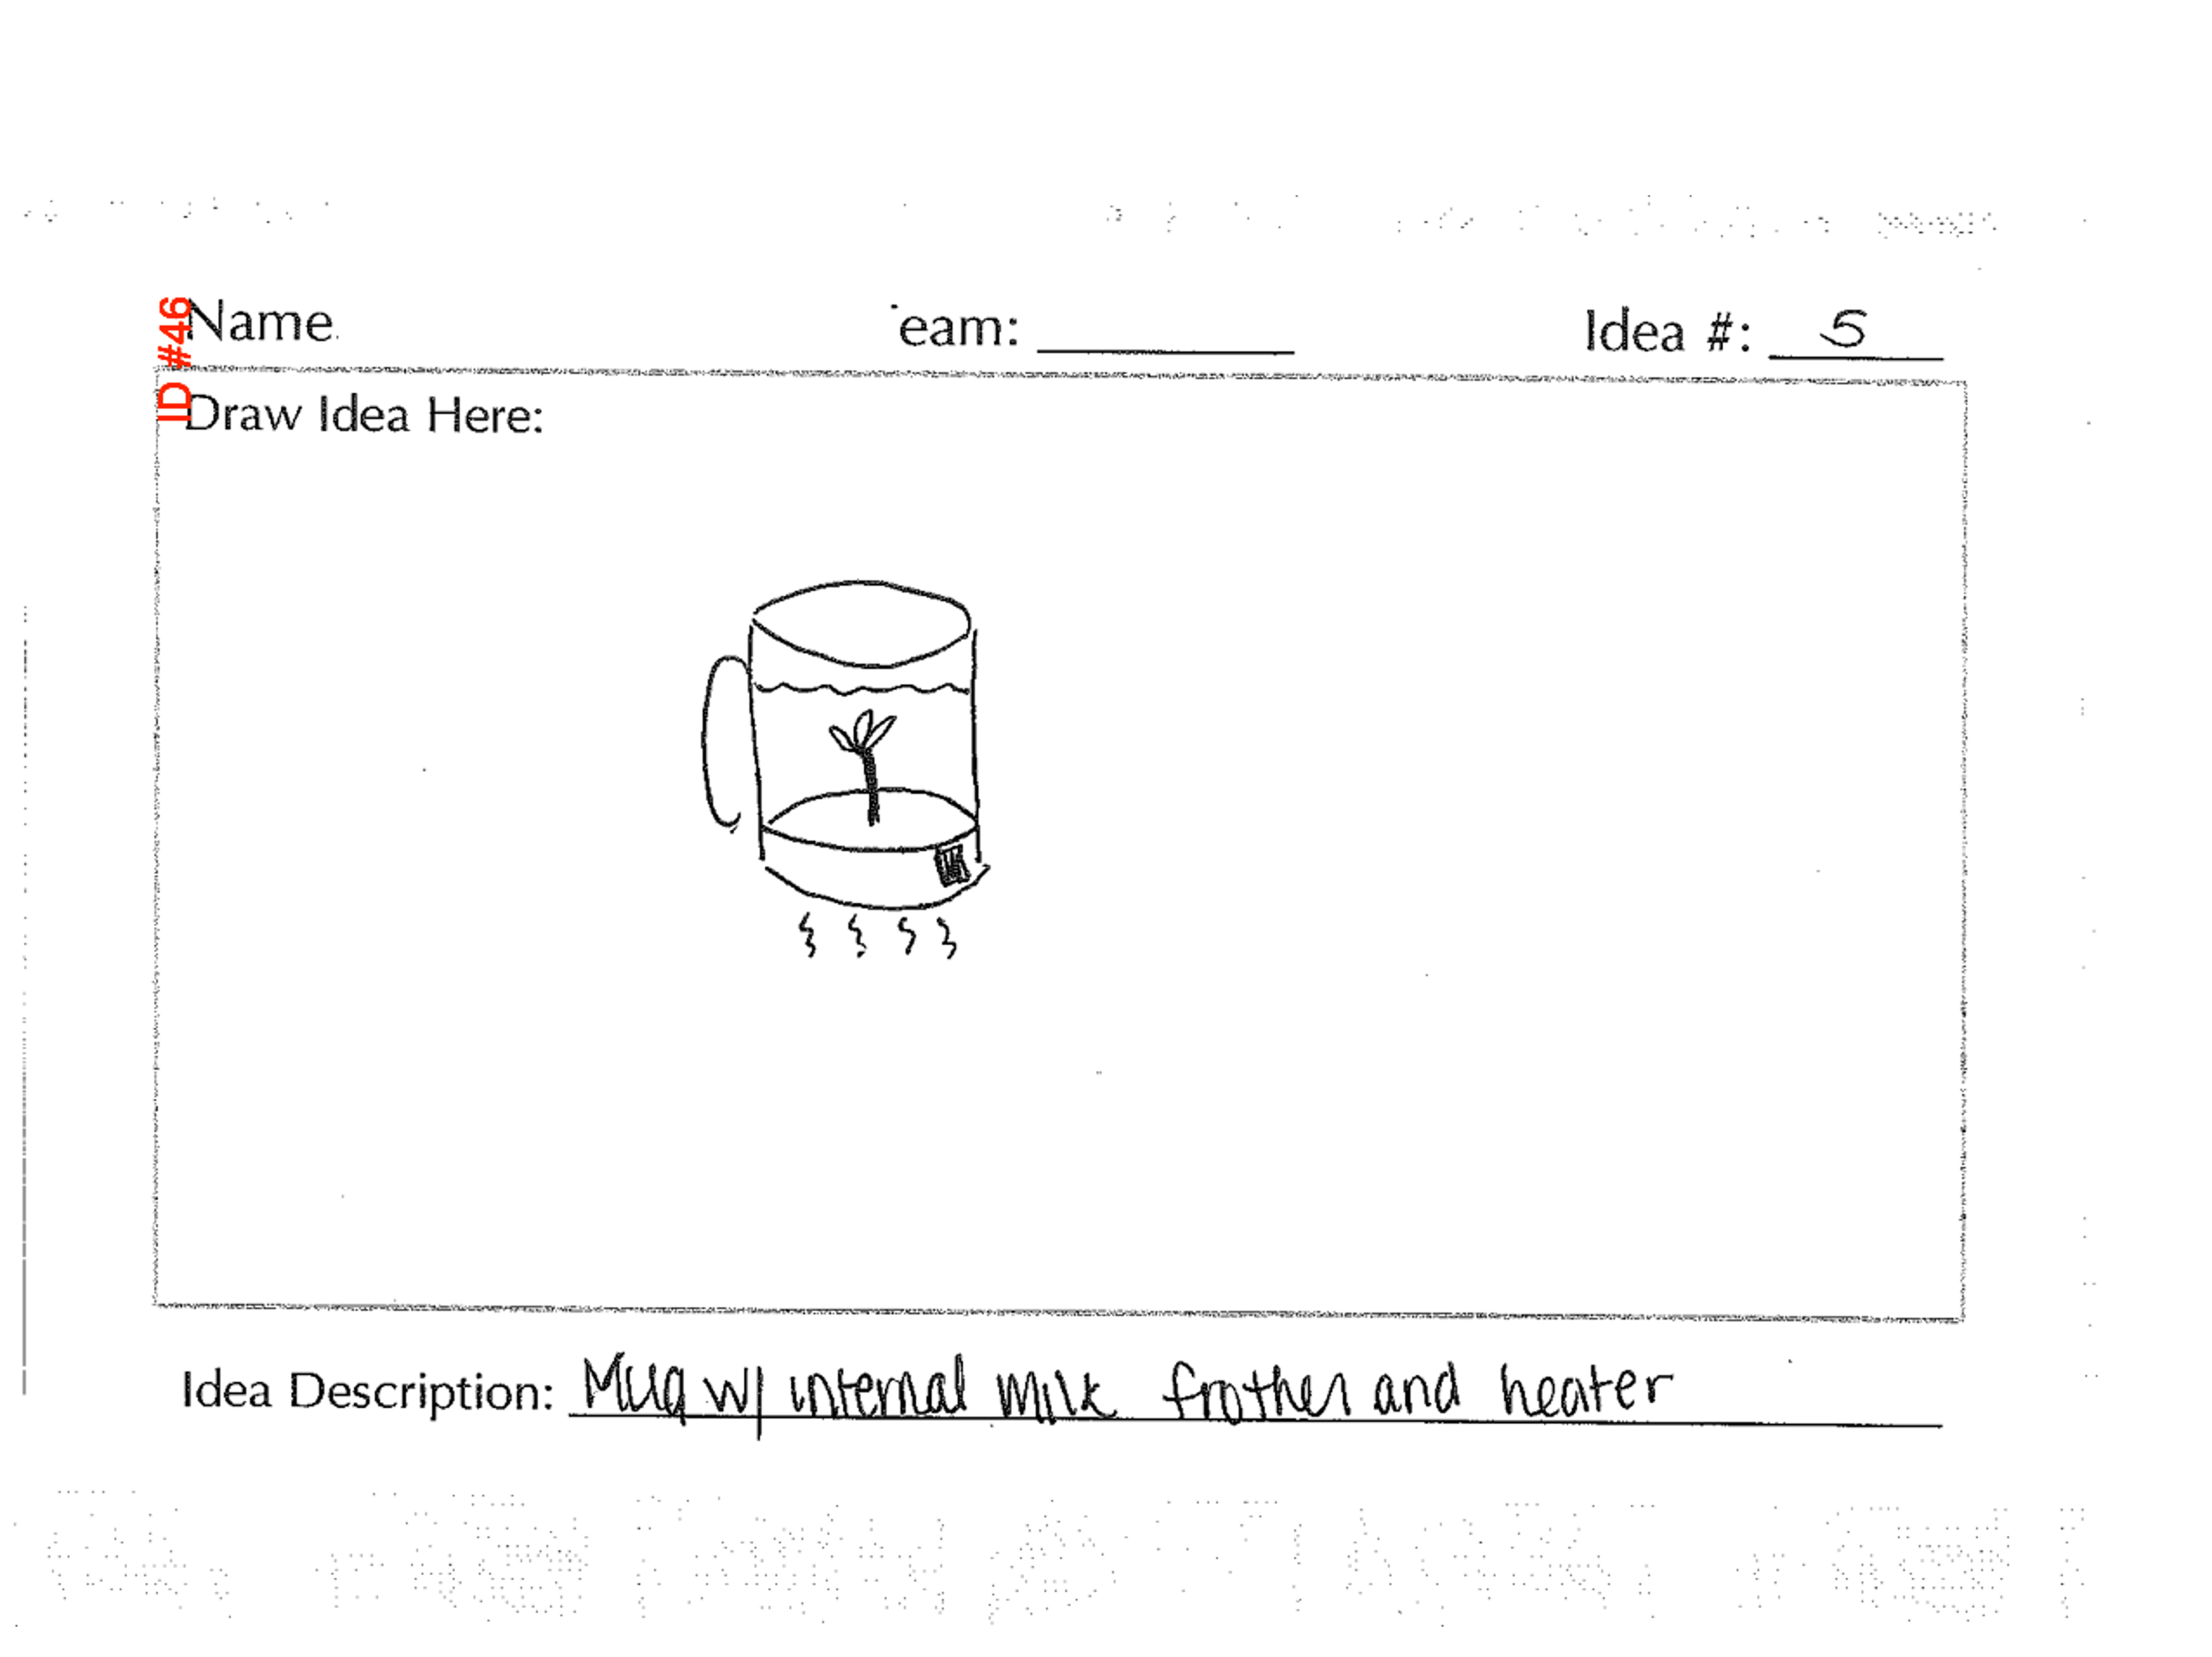 ID #46
Name
eam: Idea #: 5
Draw Idea Here:
Idea Description: Mug w/ internal milk frother and heater